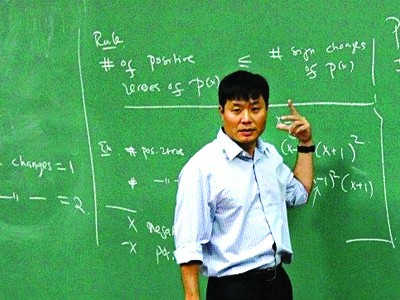 Rule
# of positive ≤ # sign changes
zeroes of p(x) of p(x)
Ex # positive (x- (x+1)²
changes = 1
# —"— -1)² (x+1)
—"— = 2
x nega
-x pos.